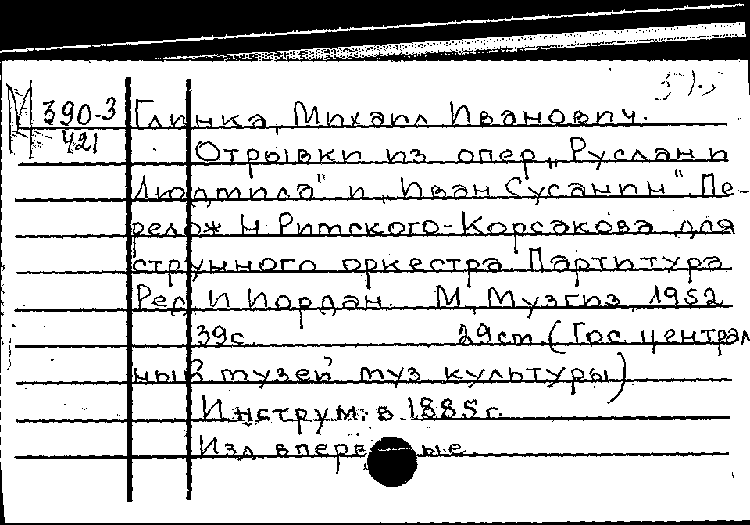 М 390-3
421
Глинка, Михаил Иванович.
Отрывки из опер „Руслан и
Людмила" и „Иван Сусанин". Пе-
релож Н Римского-Корсакова для
струнного оркестра Партитура
Ред И Иордан М, Музгиз, 1952
39с. 29см. (Гос. централ
ный музей муз культуры)
Инструм. в 1885г.
Изд впервые.